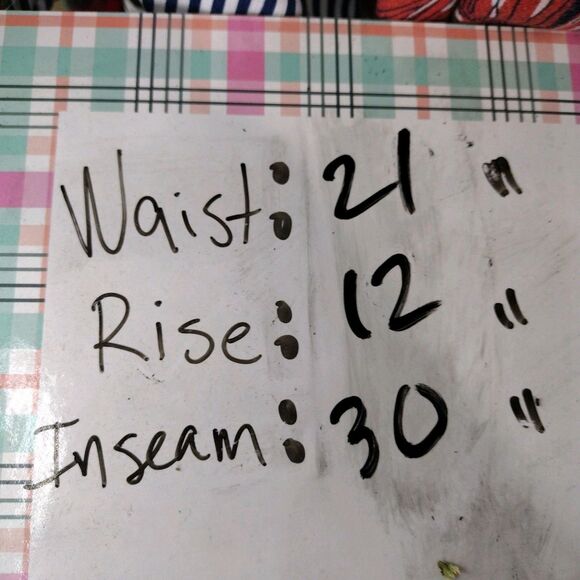 Waist: 21 "
Rise: 12 "
Inseam: 30 "